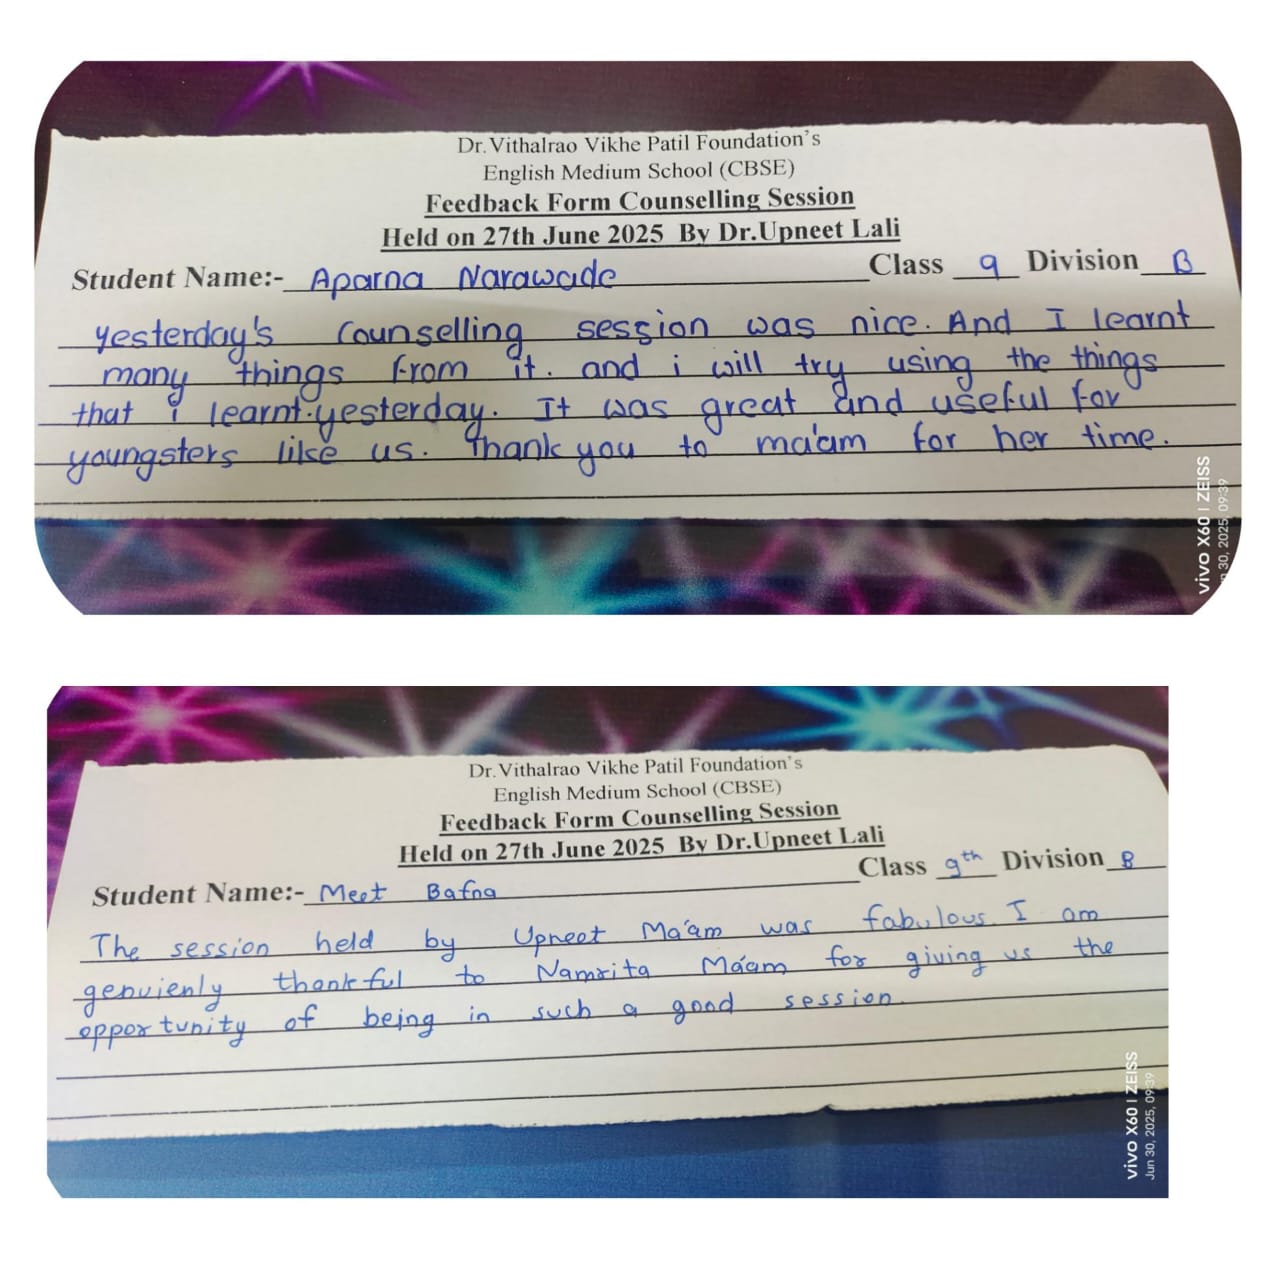 Dr.Vithalrao Vikhe Patil Foundation's
English Medium School (CBSE)
Feedback Form Counselling Session
Held on 27th June 2025 By Dr.Upneet Lali
Student Name:- Aparna Narawade Class 9 Division B
yesterday's Counselling session was nice. And I learnt
many things from it. and i will try using the things
that i learnt yesterday. It was great and useful for
youngsters like us. Thank you to ma'am for her time.
vivo X60 | ZEISS
30, 2025, 09:39
Dr.Vithalrao Vikhe Patil Foundation's
English Medium School (CBSE)
Feedback Form Counselling Session
Held on 27th June 2025 By Dr.Upneet Lali
Student Name:- Meet Bafna Class 9th Division B
The session held by Upneet Ma'am was fabulous. I am
genuienly thankful to Namrita Ma'am for giving us the
opportunity of being in such a good session.
vivo X60 | ZEISS
Jun 30, 2025, 09:39